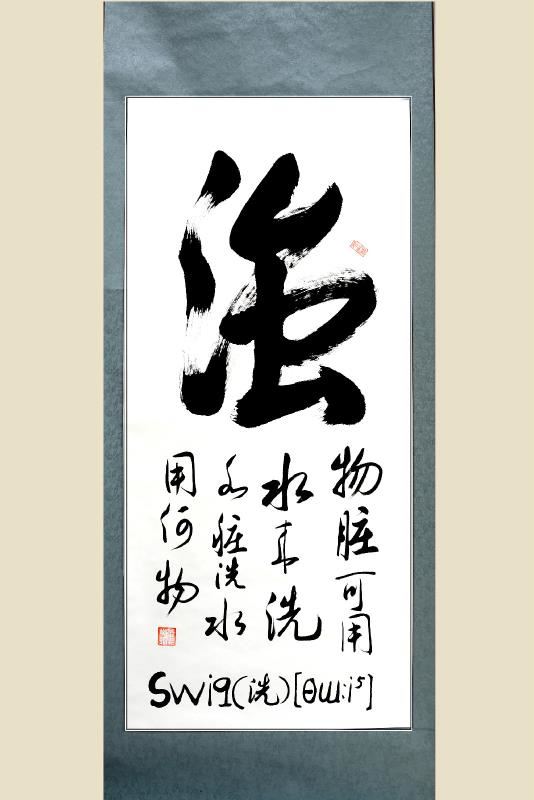 物脏可用
水来洗
水脏洗水
用何物
Swiq(洗)[θɯ:i⁵]